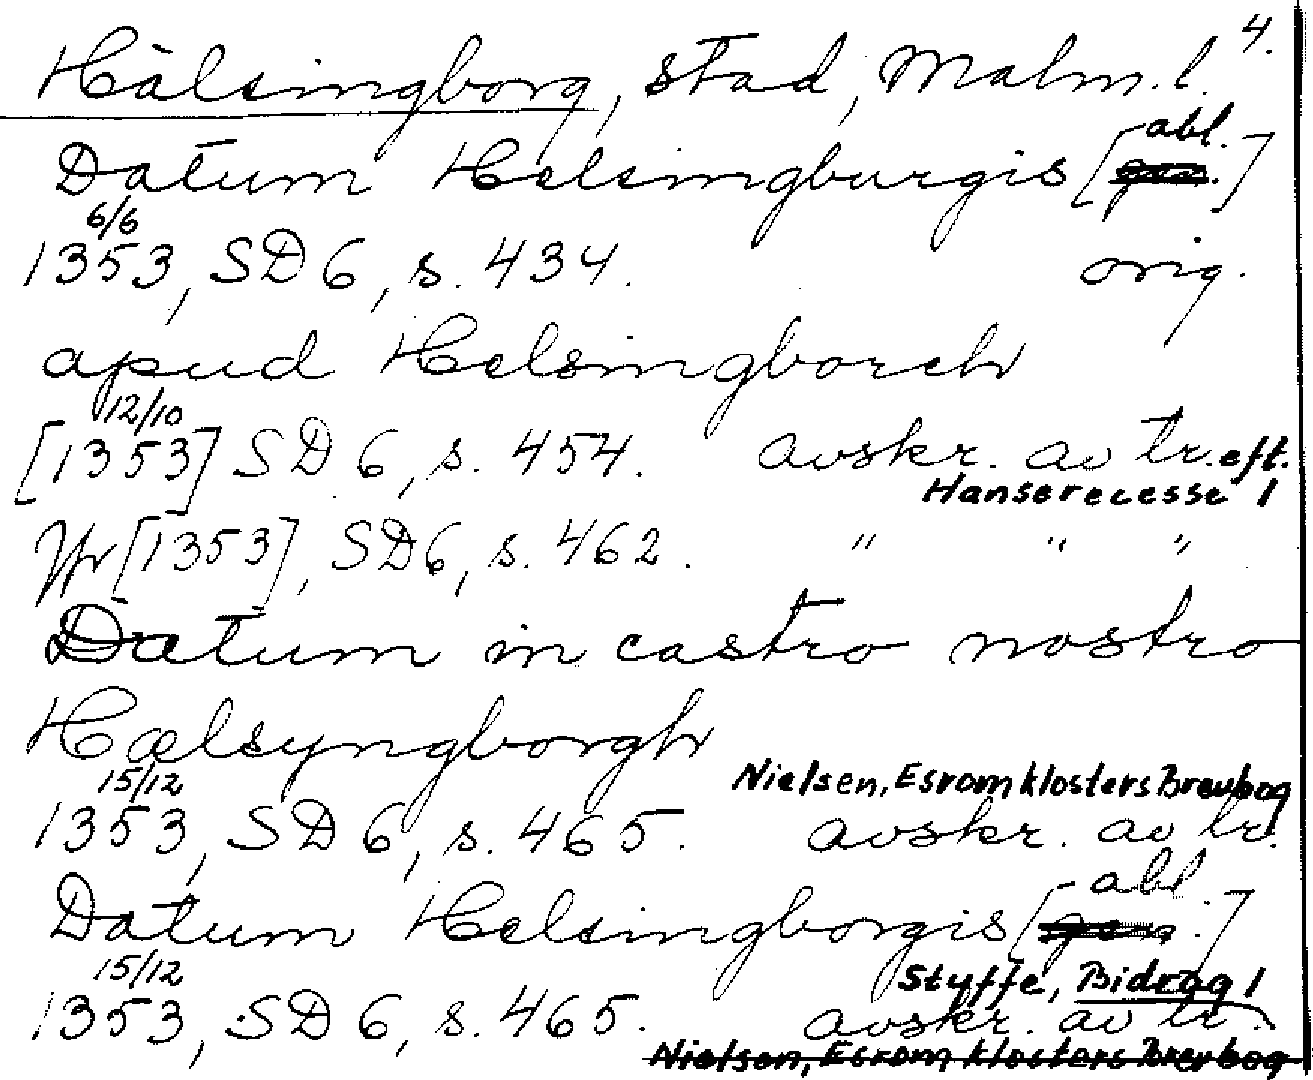 4.
Hälsingborg, stad, Malm. l.
abl.
Datum Helsingburgis [gen.]
6/6
1353, SD 6, s. 434. orig.
apud Helsingborch
12/10
[1353] SD 6, s. 454. avskr. av tr. eft.
Hanserecesse 1
[1353], SD 6, s. 462. " " "
Datum in castro nostro
Hælsyngborgh
15/12 Nielsen, Esrom klosters Brevbog
1353, SD 6, s. 465. avskr. av tr.
abl
Datum Helsingborgis [gen.]
15/12 Styffe, Bidrag 1
1353, SD 6, s. 465. avskr. av tr.
Nielsen, Esrom klosters Brevbog